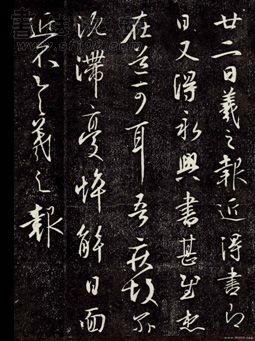 廿二日羲之報近得書即
日又得永興書甚慰想
在道可耳吾疾故爾
沉滯憂悴解日面
近不具羲之報